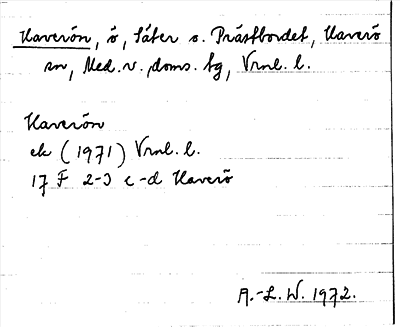 Haverön, ö, Säter o. Prästbordet, Haverö
sn, Med. v. doms. tg, Vrnl. l.
Haverön
ek (1971) Vrnl. l.
17 F 2-3 c-d Haverö
A.-L. W. 1972.